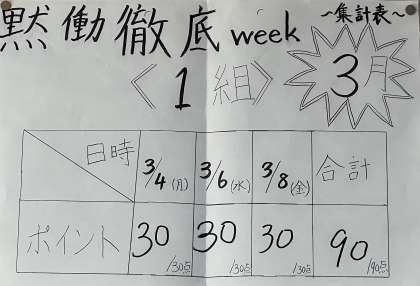 黙働徹底week 〜集計表〜
《1組》 3月
日時 3/4(月) 3/6(水) 3/8(金) 合計
ポイント 30/30点 30/30点 30/30点 90/90点